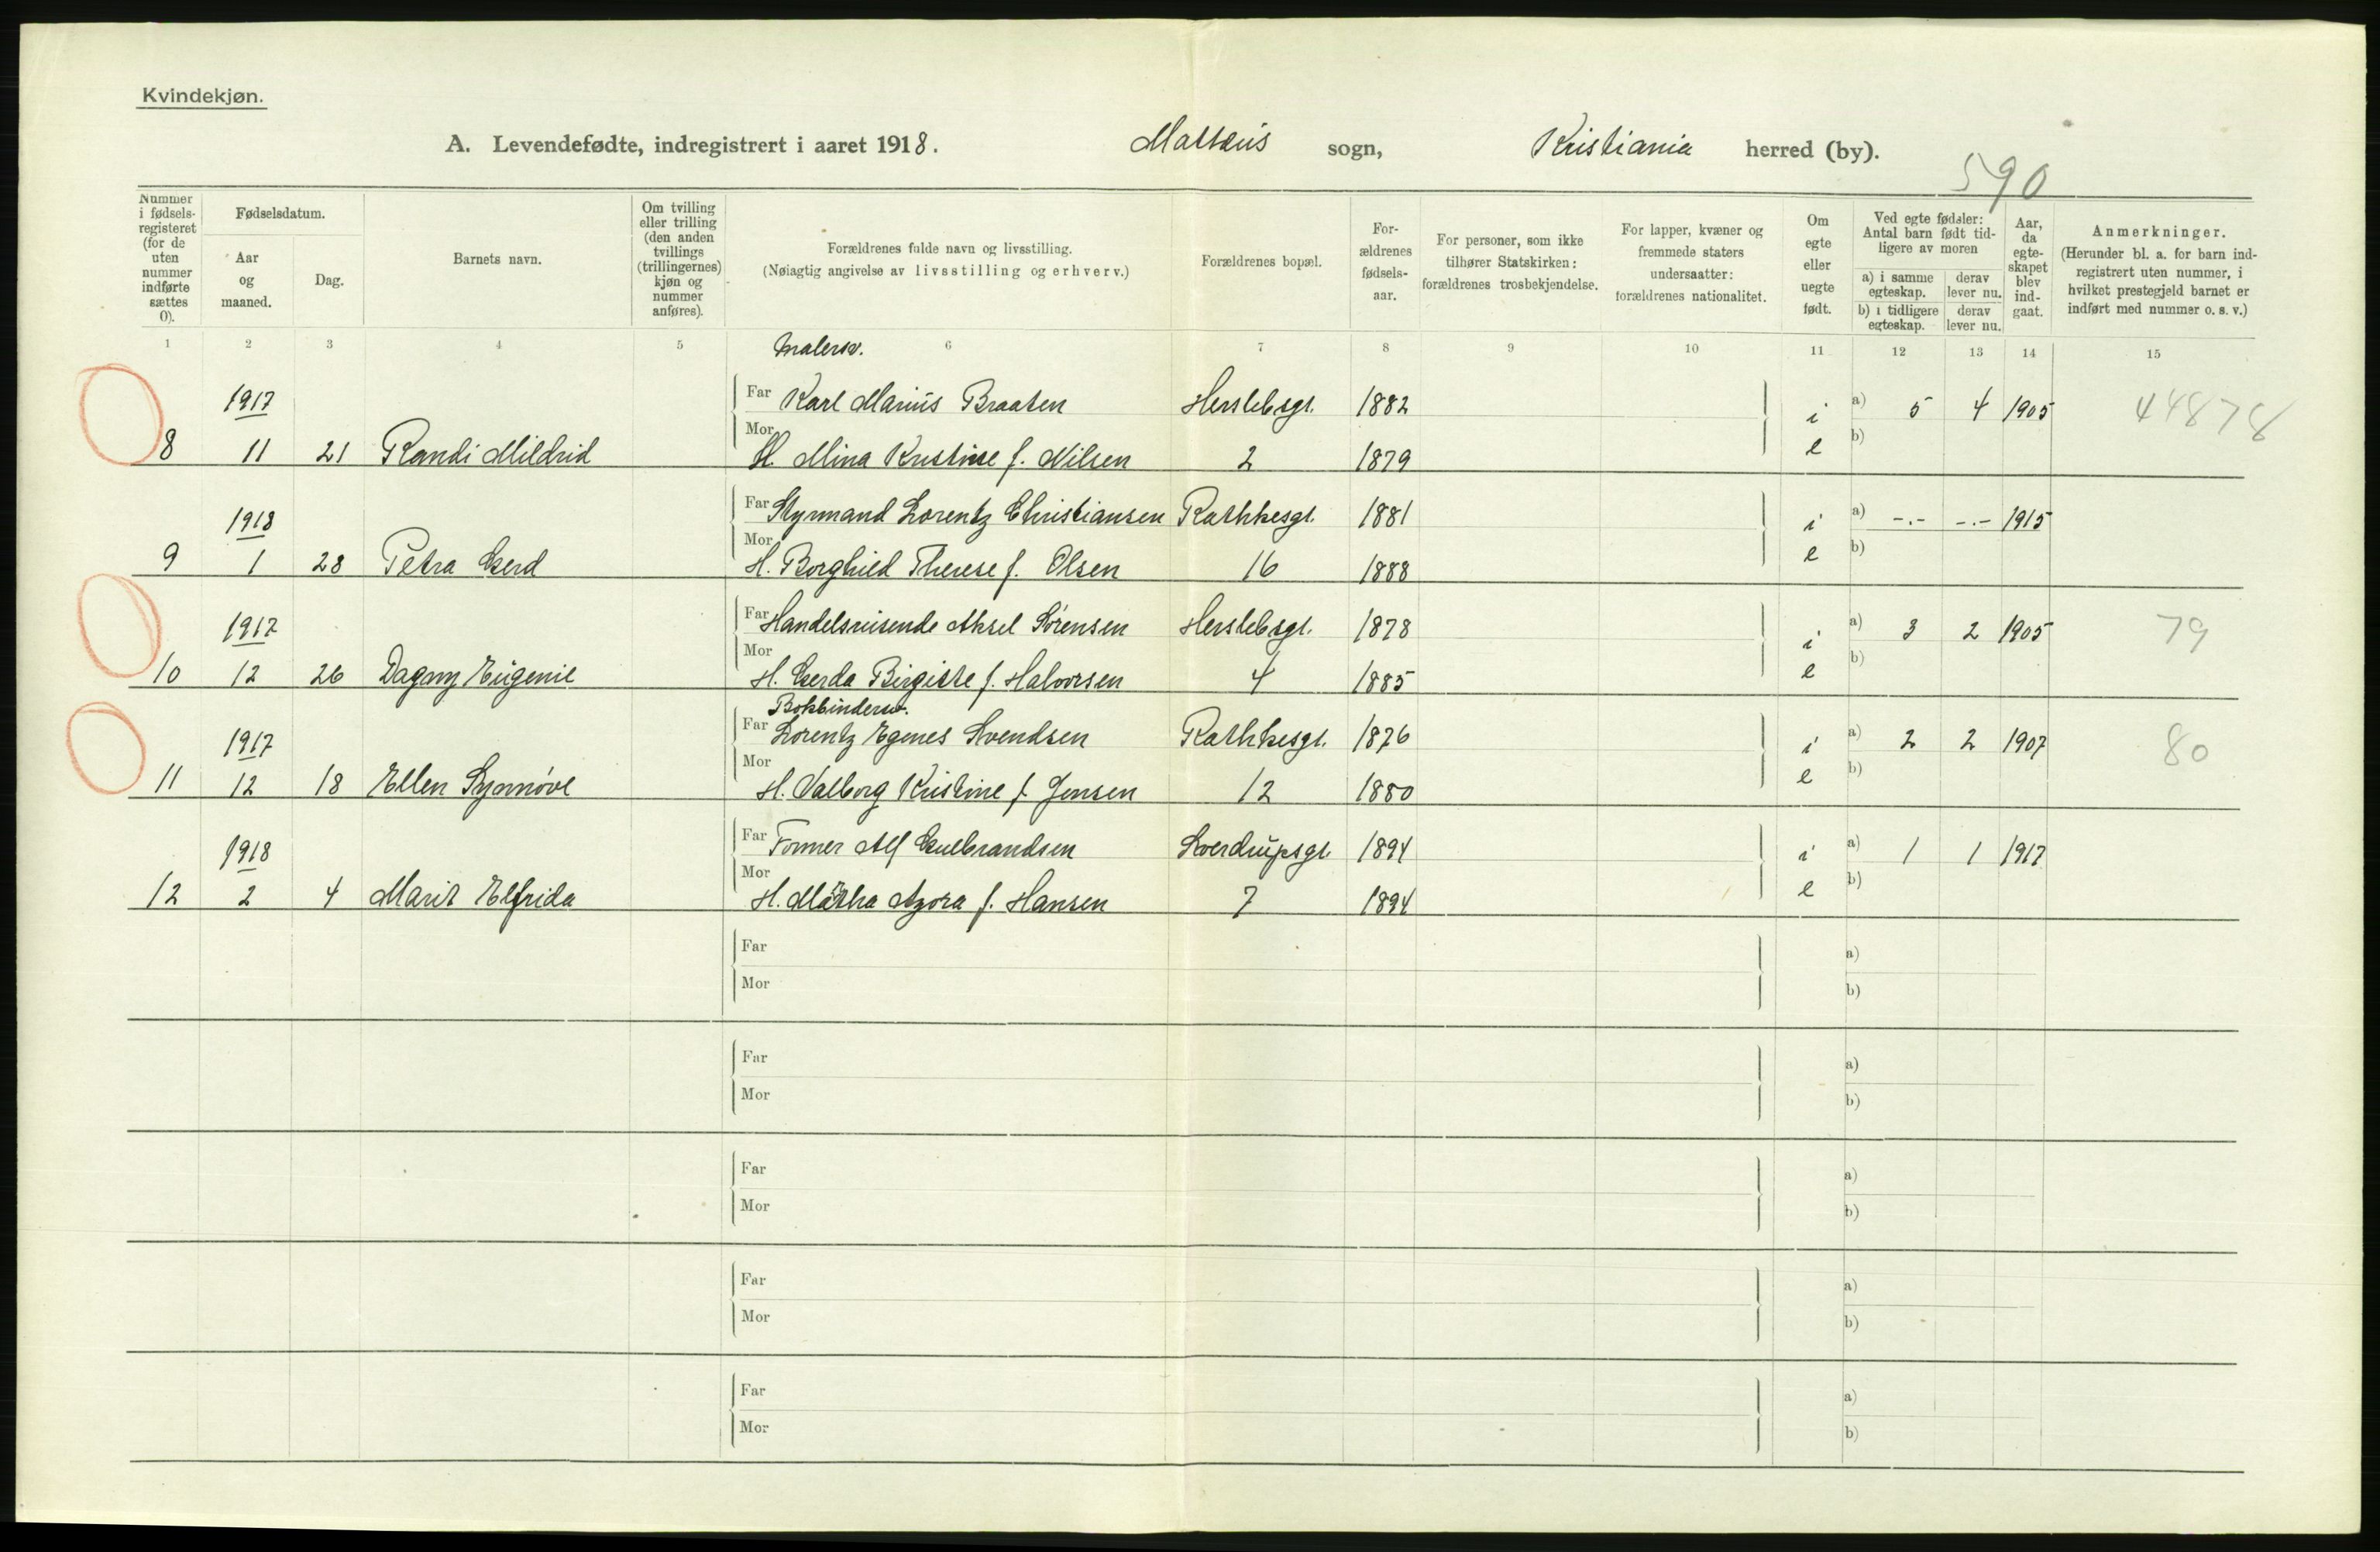 Kvindekjøn.
A. Levendefødte, indregistrert i aaret 1918. Mattæus sogn, Kristiania herred (by).
590
Nummer i fødsels-registeret (for de uten nummer indførte sættes 0).
Fødselsdatum.
Aar og maaned.
Dag.
Barnets navn.
Om tvilling eller trilling (den anden tvillings (trillingernes) kjøn og nummer anføres).
Forældrenes fulde navn og livsstilling.
(Nøiagtig angivelse av livsstilling og erhverv.)
Forældrenes bopæl.
For-ældrenes fødsels-aar.
For personer, som ikke tilhører Statskirken: forældrenes trosbekjendelse.
For lapper, kvæner og fremmede staters undersaatter: forældrenes nationalitet.
Om egte eller uegte født.
Ved egte fødsler: Antal barn født tid-ligere av moren
a) i samme egteskap.
derav lever nu.
b) i tidligere egteskap.
derav lever nu.
Aar, da egte-skapet blev ind-gaat.
Anmerkninger.
(Herunder bl. a. for barn ind-registrert uten nummer, i hvilket prestegjeld barnet er indført med nummer o. s. v.)
1 2 3 4 5 6 7 8 9 10 11 12 13 14 15
Malersv.
1917 Far Karl Marius Braaten Herslebsgt. 1882 i a) 5 4 1905 44878
8 11 21 Randi Mildrid Mor H. Mina Kristine f. Nilsen 2 1879 e b)
1918 Far Styrmand Lorentz Christiansen Rathkesgt. 1881 i a) -.- -.- 1915
9 1 28 Petra Gerd Mor H. Borghild Therese f. Olsen 16 1888 e b)
1917 Far Handelsreisende Aksel Sørensen Herslebsgt. 1878 i a) 3 2 1905 79
10 12 26 Dagny Eugenie Mor H. Gerda Birgitte f. Halvorsen 4 1885 e b)
Bokbindersv.
1917 Far Lorentz Egenes Svendsen Rathkesgt. 1876 i a) 2 2 1907 80
11 12 18 Ellen Synnøve Mor H. Valborg Kristine f. Jensen 12 1880 e b)
1918 Far Former Alf Gulbrandsen Sverdrupsgt. 1894 i a) 1 1 1917
12 2 4 Marit Elfrida Mor H. Martha Azora f. Hansen 7 1894 e b)
Far a)
Mor b)
Far a)
Mor b)
Far a)
Mor b)
Far a)
Mor b)
Far a)
Mor b)